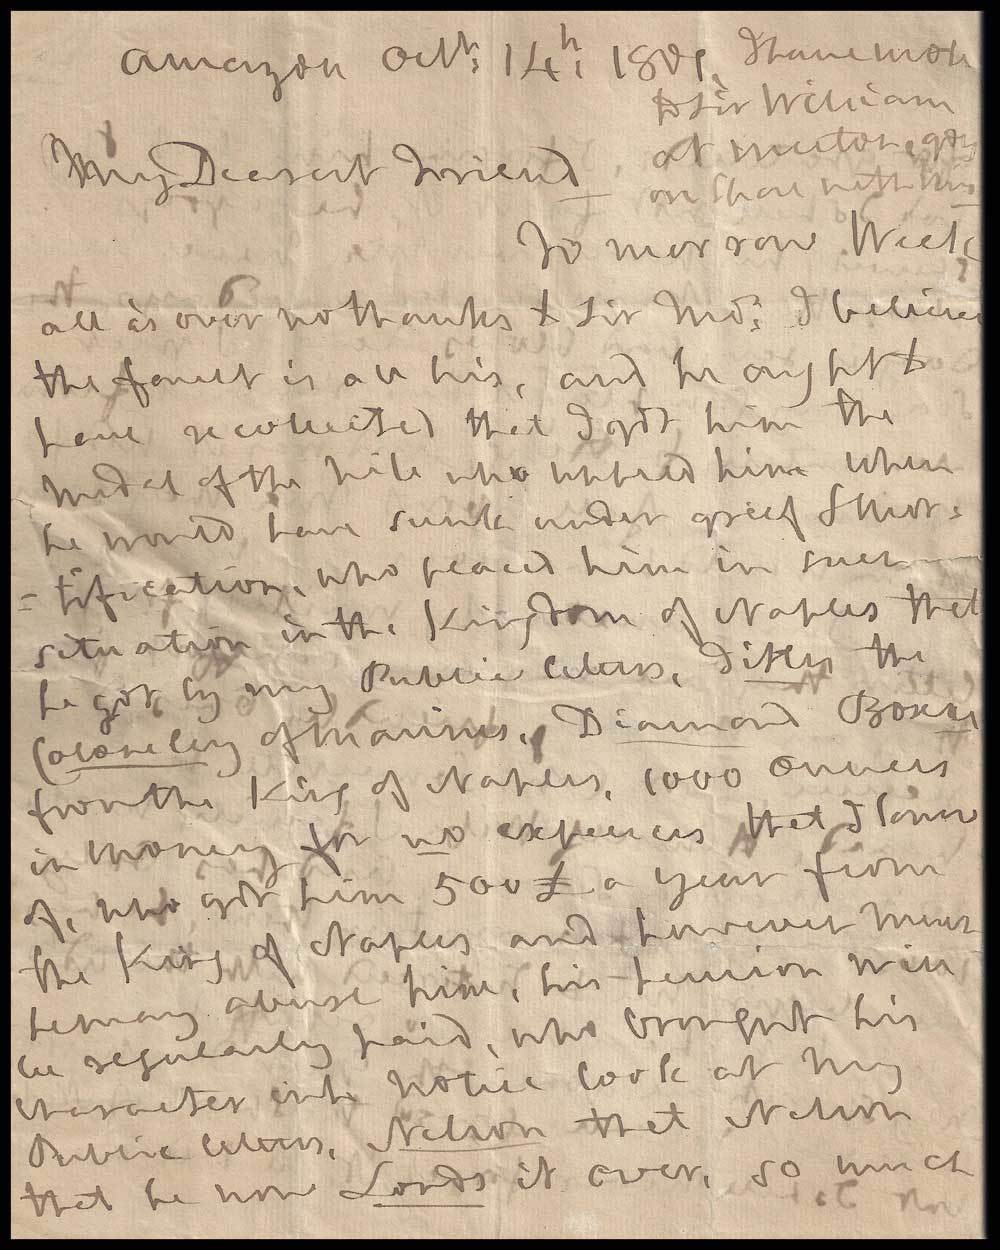 Amazon Octr: 14th: 1801,
My Dearest Friend
I have wrote
to Sir William
at Merton, goes
on shore with this
Tomorrow Week
all is over no thanks to Sir Thos: I believe
the fault is all his, and he ought to
have recollected that I got him the
Medal of the Nile who upheld him when
he would have sunk under grief & Mor=
=tification, who placed him in such
situation in the Kingdom of Naples that
he got by my Public letters, Titles the
Colonelcy of Marines, Diamond Boxes
from the King of Naples, 1000 Ounces
in Money for no expences that I know
of, who got him 500£ a year from
the King of Naples and however Much
he may abuse him, his pension will
be regularly paid, who brought his
Character into Notice look at My
Public letters, Nelson that Nelson
that he now Lords it over, so much